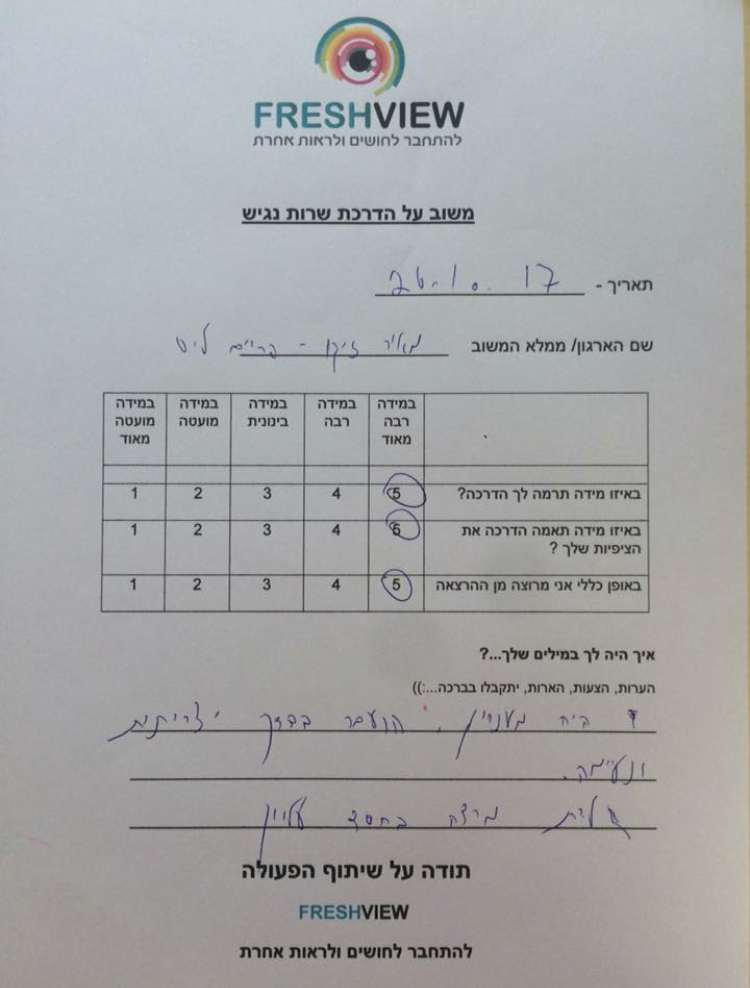 FRESHVIEW
להתחבר לחושים ולראות אחרת
משוב על הדרכת שרות נגיש
תאריך - 26.10.17
שם הארגון/ ממלא המשוב מאיר זיקן - פריים ליס
במידה רבה מאוד במידה רבה במידה בינונית במידה מועטה במידה מועטה מאוד
באיזו מידה תרמה לך הדרכה? 5 4 3 2 1
באיזו מידה תאמה הדרכה את הציפיות שלך ? 5 4 3 2 1
באופן כללי אני מרוצה מן ההרצאה 5 4 3 2 1
איך היה לך במילים שלך...?
הערות, הצעות, הארות, יתקבלו בברכה...:))
היה מעניין. הועבר בדרך יצירתית
ונעימה.
מרצה בחסד עליון
תודה על שיתוף הפעולה
FRESHVIEW
להתחבר לחושים ולראות אחרת